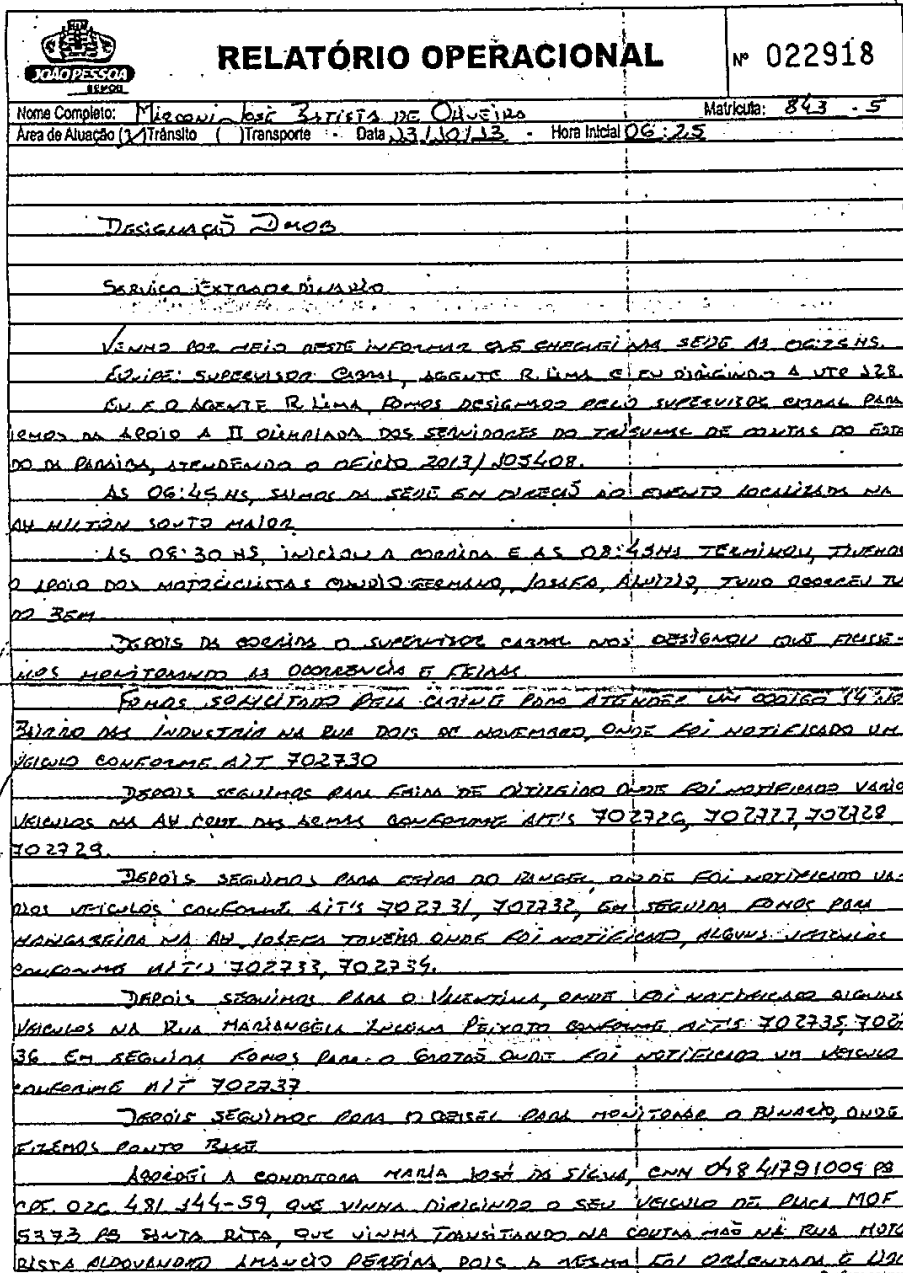 JOÃO PESSOA
SEMOB
RELATÓRIO OPERACIONAL
Nº 022918
Nome Completo: Mirconi José Batista de Oliveira Matrícula: 843-5
Área de Atuação (X) Trânsito ( ) Transporte Data 13/10/13 Hora Inicial 06:25
DESIGNAÇÃO DMOB
SERVIÇO EXTRAORDINÁRIO
VENHO POR MEIO DESTE INFORMAR QUE CHEGUEI NA SEDE AS 06:25 HS.
EQUIPE: SUPERVISOR CABRAL, AGENTE R. LIMA E EU DIRIGINDO A UTP 128.
EU E O AGENTE R. LIMA, FOMOS DESIGNADOS PELO SUPERVISOR CABRAL PARA
IRMOS DA APOIO A II OLIMPIADA DOS SERVIDORES DO TRIBUNAL DE CONTAS DO ESTA
DO DA PARAIBA, ATENDENDO O OFICIO 2013/105408.
AS 06:45 HS, SAIMOS DA SEDE EM DIREÇÃO AO EVENTO LOCALIZADA NA
AV HILTON SOUTO MAIOR
AS 08:30 HS INICIOU A CORRIDA E AS 08:45HS TERMINOU, TIVEMOS
O APOIO DOS MOTOCICLISTAS CLAUDIO GERMANO, JOSAFA, ALUIZIO, TUDO OCORREU TU
DO BEM
DEPOIS DA CORRIDA O SUPERVISOR CABRAL NOS DESIGNOU QUE FICASSE-
MOS MONITORANDO AS OCORRENCIA E FEIRAS.
FOMOS SOLICITADO PELA PARA ATENDER UM CODIGO 14 NO
BAIRRO DAS INDUSTRIA NA RUA DOIS DE NOVEMBRO, ONDE FOI NOTIFICADO UM
VEICULO CONFORME AIT 702730
DEPOIS SEGUIMOS PARA FEIRA DE OITIZEIRO ONDE FOI NOTIFICADO VARIO
VEICULOS NA AV COMT DAS ARMAS CONFORME AIT'S 702726, 702727, 702728
702729.
DEPOIS SEGUIMOS PARA FEIRA DO RANGEL ONDE FOI NOTIFICADO VA-
RIOS VEICULOS CONFORME AIT'S 702731, 702732, EM SEGUIDA FOMOS PARA
MANGABEIRA NA AV JOSEFA TAVEIRA ONDE FOI NOTIFICADO, ALGUNS VEICULOS
CONFORME AIT'S 702733, 702734.
DEPOIS SEGUIMOS PARA O VALENTINA, ONDE FOI NOTIFICADO ALGUNS
VEICULOS NA RUA MARIANGELA LUCENA PEIXOTO CONFORME AIT'S 702735, 7027
36 EM SEGUIDA FOMOS PARA O GROTÃO ONDE FOI NOTIFICADO UM VEICULO
CONFORME AIT 702737
DEPOIS SEGUIMOS PARA O GEISEL PARA MONITORAR O BINARIO, ONDE
FIZEMOS PONTO BASE
ABORDEI A CONDUTORA MARIA JOSÉ DA SILVA, CNH 04841791009 PB
CPF 026 481 144-59, QUE VINHA DIRIGINDO O SEU VEICULO DE PLACA MOF
5373 PB SANTA RITA, QUE VINHA TRANSITANDO NA CONTRA MÃO NA RUA MOTO
RISTA ALDOVANDRO AMANCIO PEREIRA, POIS A MESMA FOI ORIENTADA E